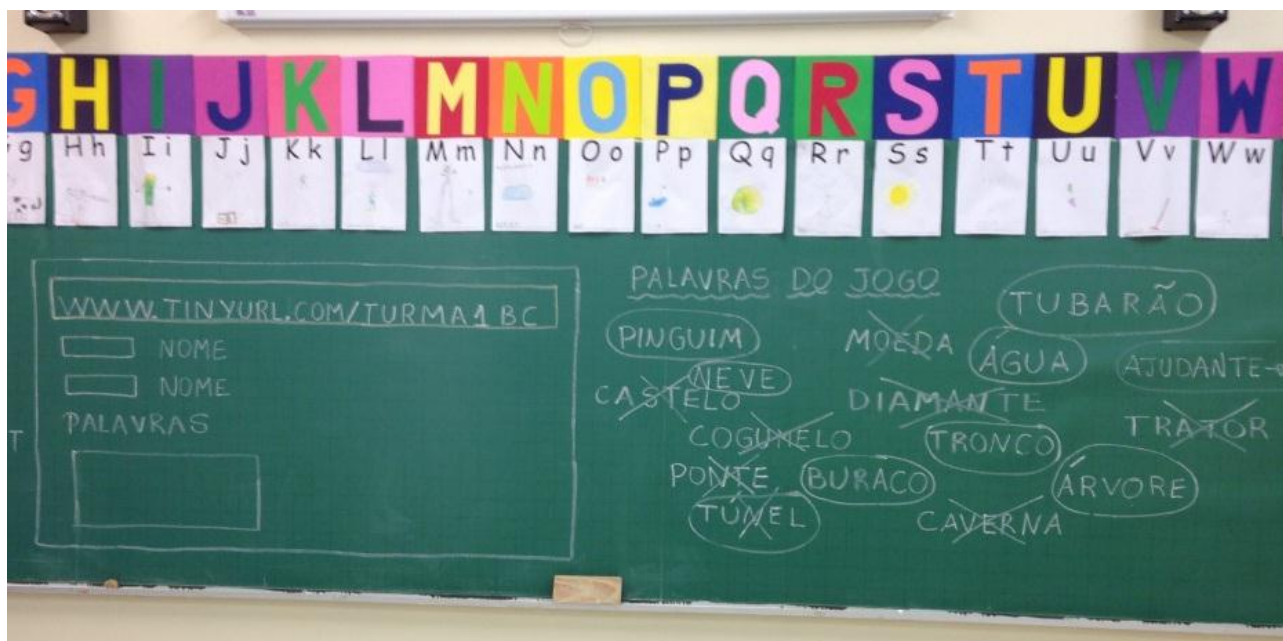 G H I J K L M N O P Q R S T U V W
g Hh Ii Jj Kk Ll Mm Nn Oo Pp Qq Rr Ss Tt Uu Vv Ww
WWW.TINYURL.COM/TURMA1BC
NOME
NOME
PALAVRAS
T
PALAVRAS DO JOGO
TUBARÃO
PINGUIM MOEDA ÁGUA AJUDANTE-
NEVE
CASTELO DIAMANTE TRATOR
COGUMELO TRONCO
PONTE BURACO ÁRVORE
TÚNEL CAVERNA